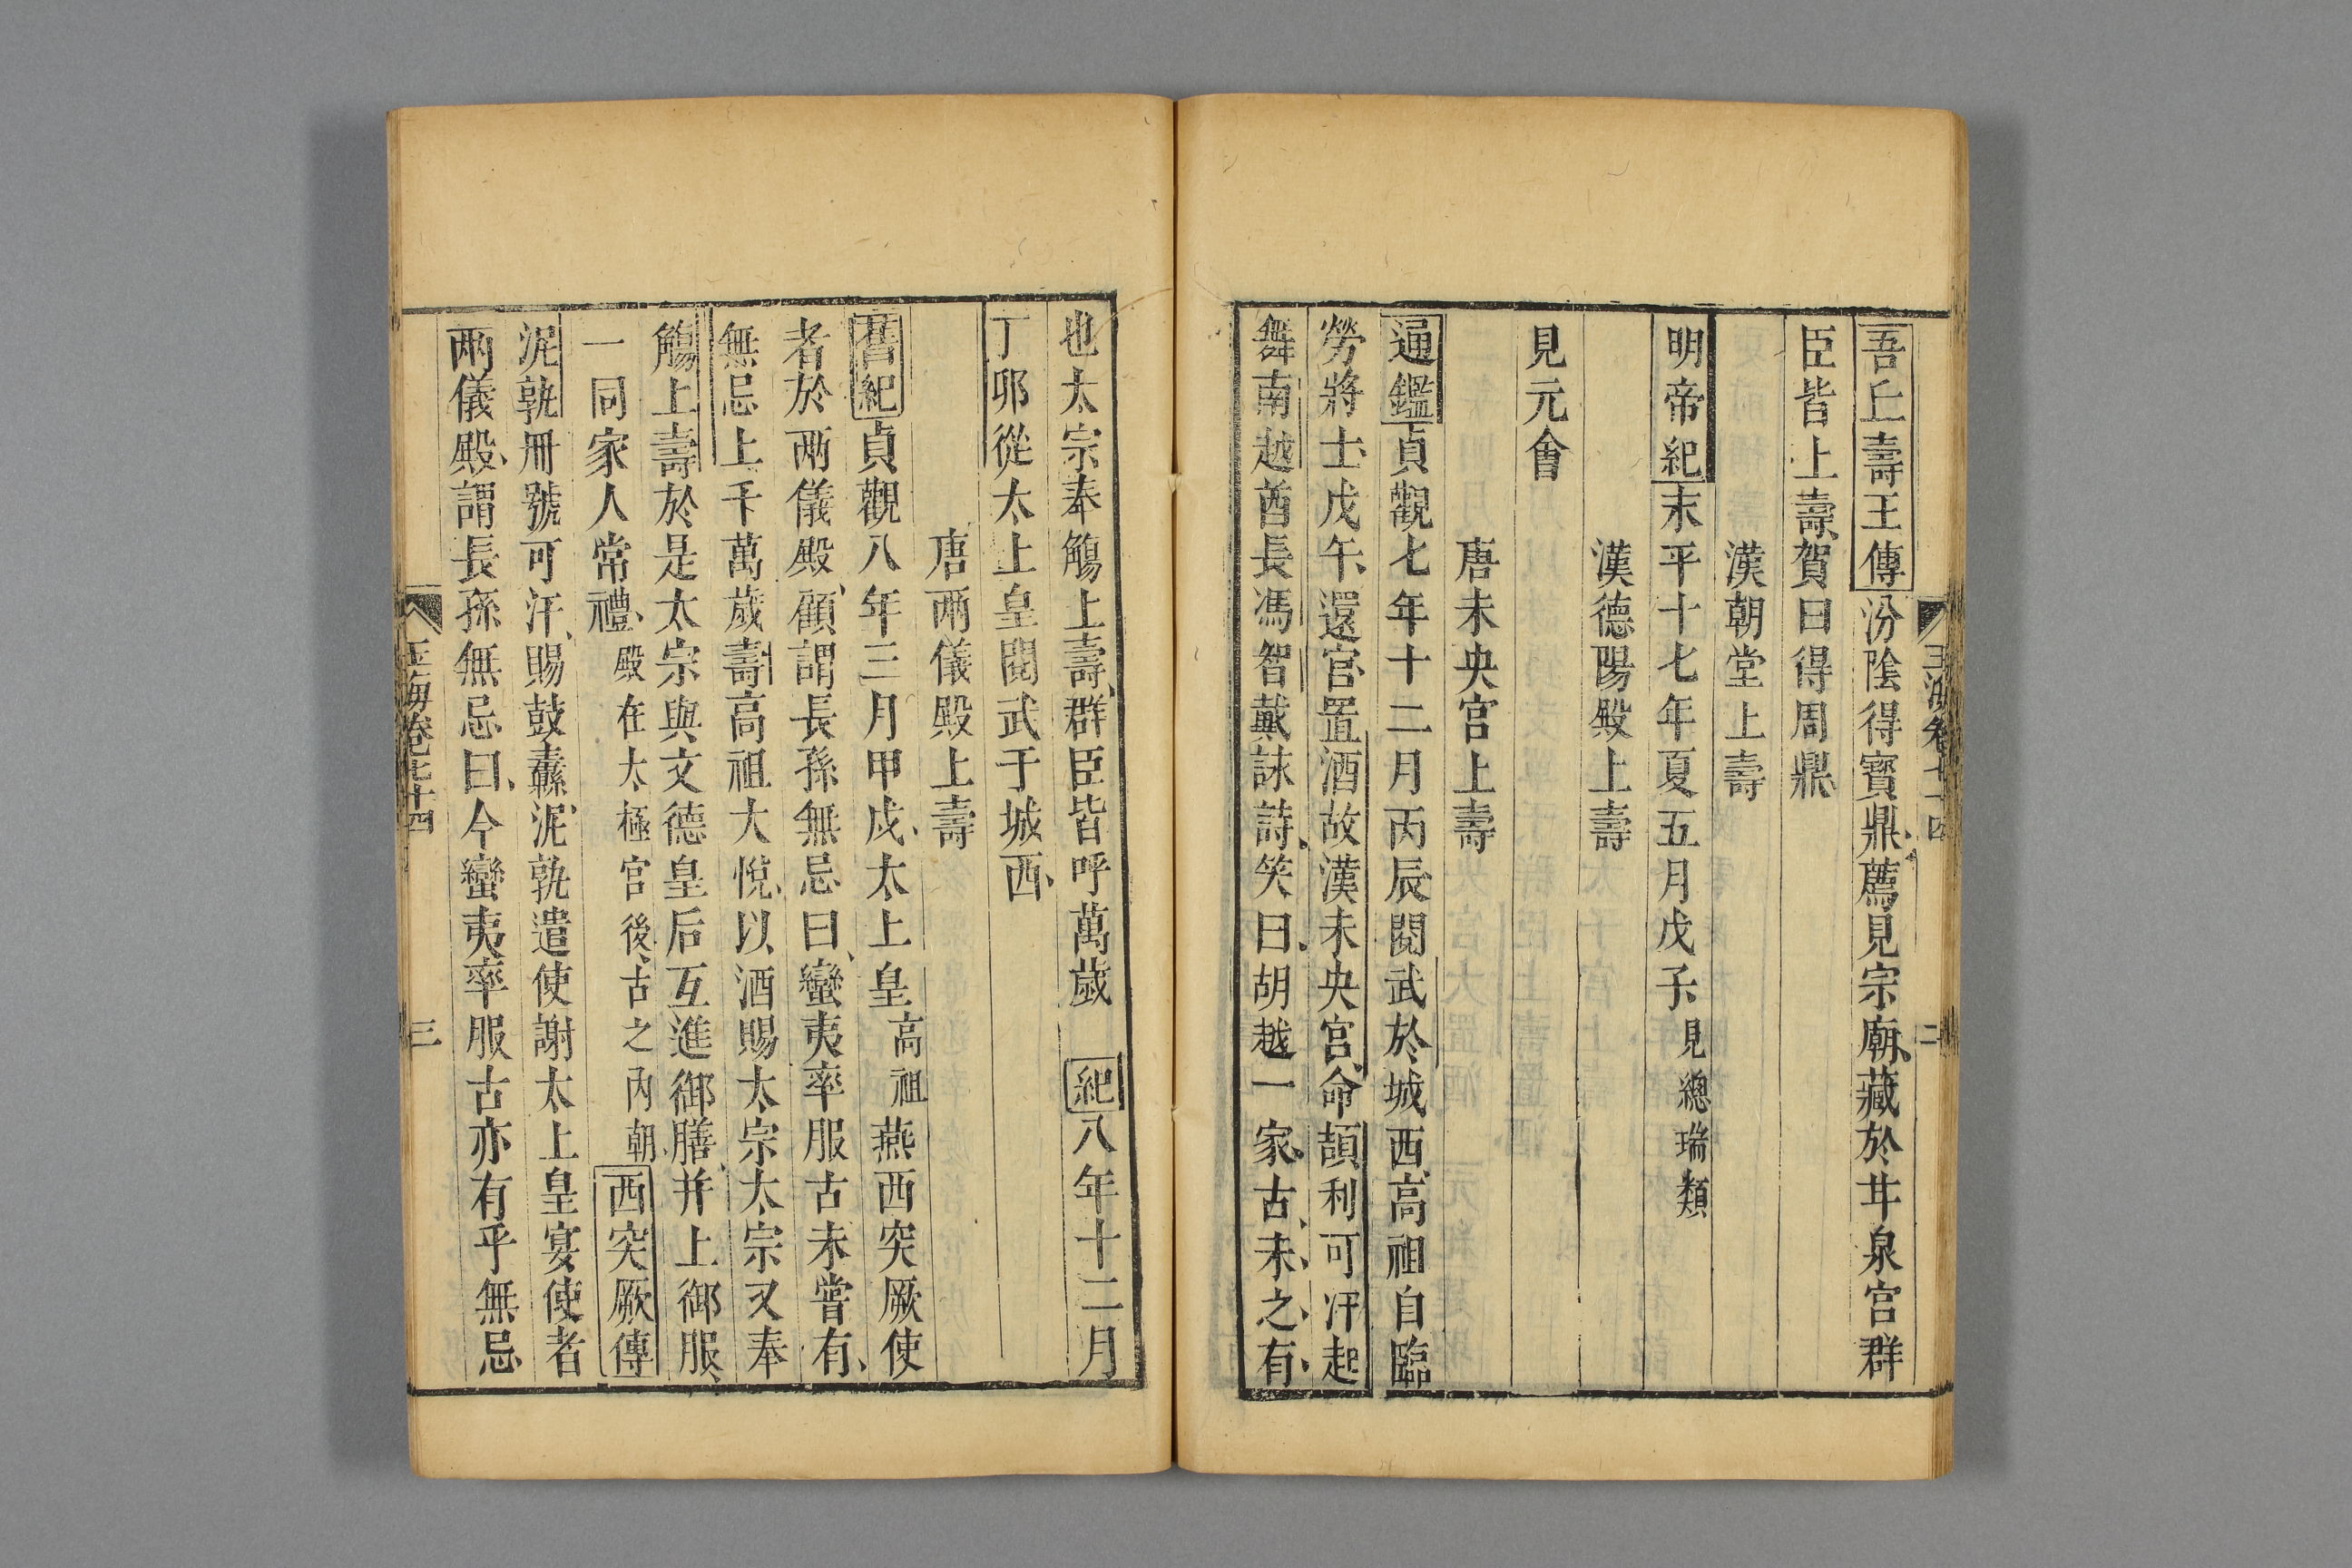 玉海卷七十四
二
吾丘壽王傳汾陰得寶鼎薦見宗廟藏於甘泉宮群
臣皆上壽賀曰得周鼎
漢朝堂上壽
明帝紀末平十七年夏五月戊子見總瑞類
漢德陽殿上壽
見元會
唐未央宮上壽
通鑑貞觀七年十二月丙辰閱武於城西高祖自臨
勞將士戊午還宮置酒故漢未央宮命頡利可汗起
舞南越酋長馮智戴詠詩笑曰胡越一家古未之有
也太宗奉觴上壽群臣皆呼萬歲 紀八年十二月
丁卯從太上皇閱武于城西
唐兩儀殿上壽
舊紀貞觀八年三月甲戌太上皇高祖燕西突厥使
者於兩儀殿顧謂長孫無忌曰蠻夷率服古未嘗有
無忌上千萬歲壽高祖大悅以酒賜太宗太宗又奉
觴上壽於是太宗與文德皇后互進御膳并上御服
一同家人常禮殿在太極宮後古之內朝西突厥傳
泥孰冊號可汗賜鼓纛泥孰遣使謝太上皇宴使者
兩儀殿謂長孫無忌曰今蠻夷率服古亦有乎無忌
玉海卷七十四
三